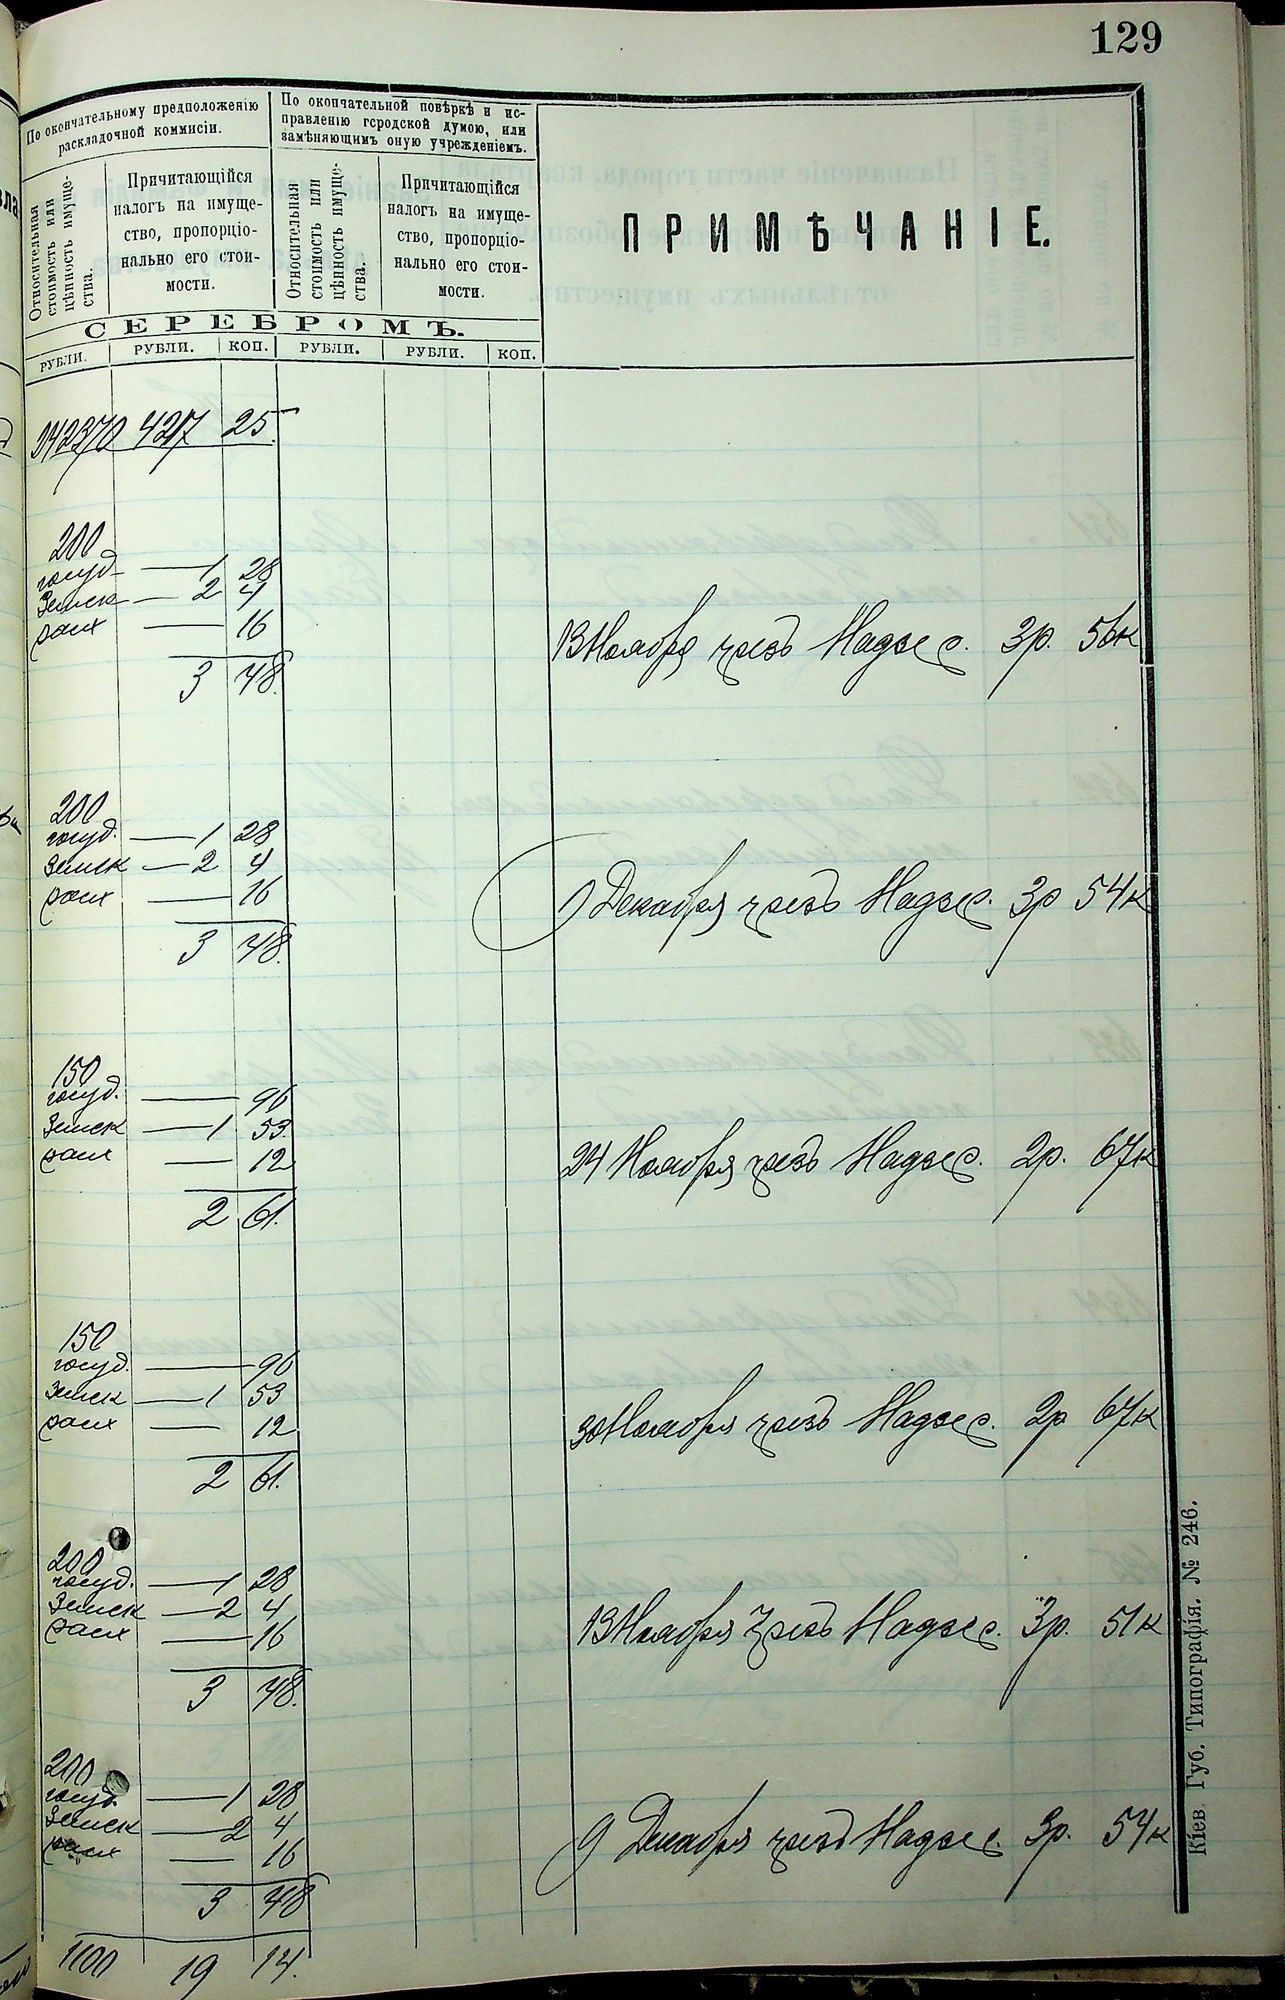 129
По окончательному предположенію
раскладочной коммисіи.
По окончательной повѣркѣ и ис-
правленію городской думою, или
замѣняющимъ оную учрежденіемъ.
Относительная
стоимость или
цѣнность имуще-
ства.
Причитающійся
налогъ на имуще-
ство, пропорціо-
нально его стои-
мости.
Относительная
стоимость или
цѣнность имуще-
ства.
Причитающійся
налогъ на имуще-
ство, пропорціо-
нально его стои-
мости.
ПРИМѢЧАНІЕ.
СЕРЕБРОМЪ.
РУБЛИ. РУБЛИ. КОП. РУБЛИ. РУБЛИ. КОП.
242370 4217 25
200
госуд. — 1 28
Земск — 2 4
— 16
3 48.
13 Ноября чрезъ Надзес. 3р. 56к
200
госуд. — 1 28
Земск — 2 4
— 16
3 48.
9 Декабря чрезъ Надзес. 3р 54к
150
госуд. — 96
Земск — 1 53
— 12
2 61.
24 Ноября чрезъ Надзес. 2р. 67к
150
госуд. — 96
Земск — 1 53
— 12
2 61.
30 Ноября чрезъ Надзес. 2р 67к
200
госуд. — 1 28
Земск — 2 4
— 16
3 48.
13 Ноября Чрезъ Надзес. 3р. 51к
200
госуд. — 1 28
Земск — 2 4
— 16
3 48
9 Декабря чрезъ Надзес. 3р. 54к
1100 19 14.
Кіев. Губ. Типографія. № 246.